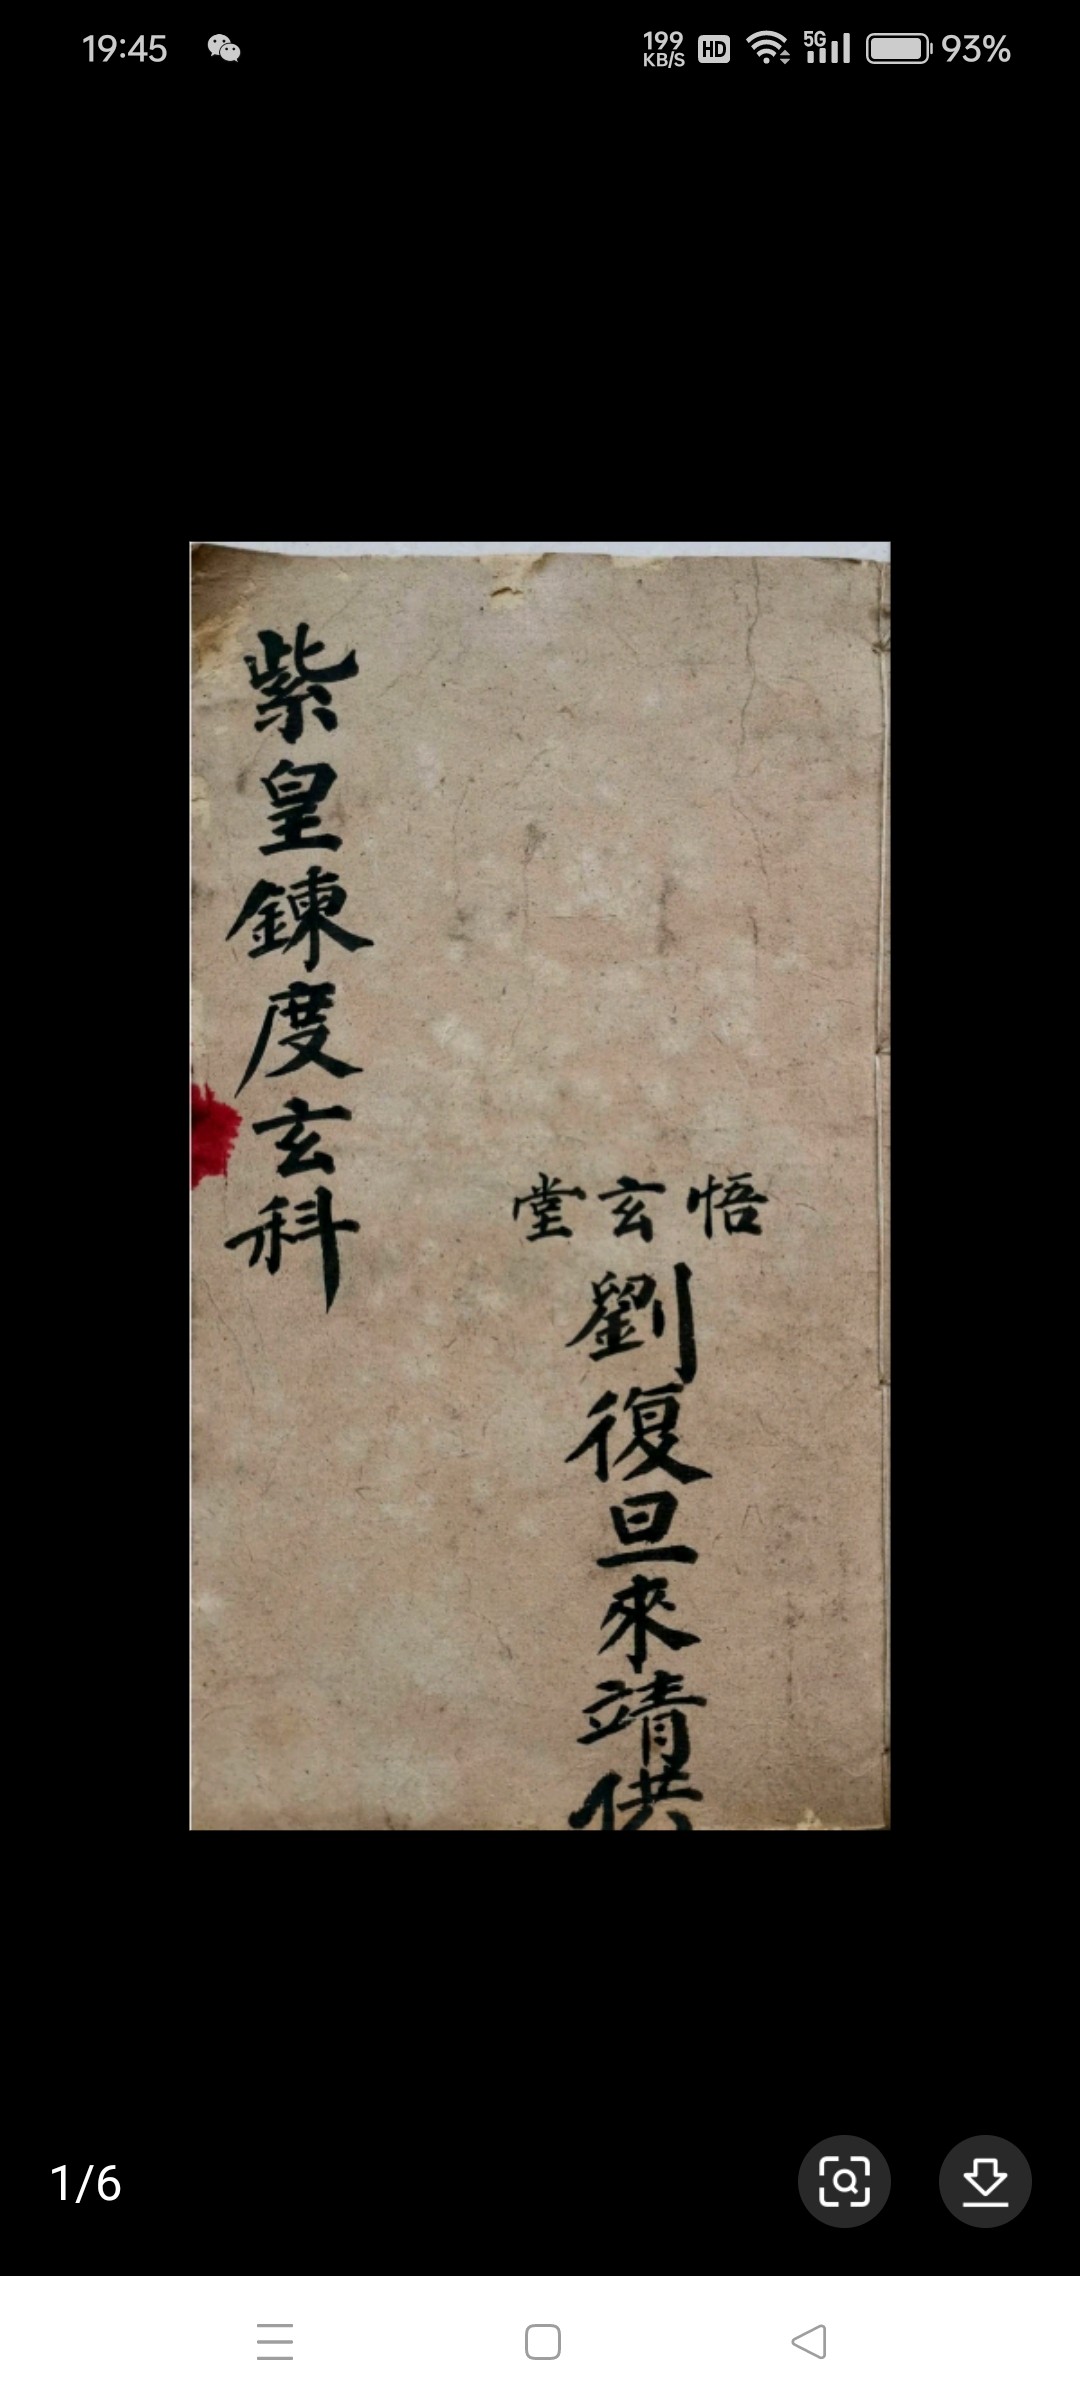 19:45
199 KB/S HD 5G 93%
紫皇鍊度玄科
悟玄堂
劉復旦來靖供
1/6